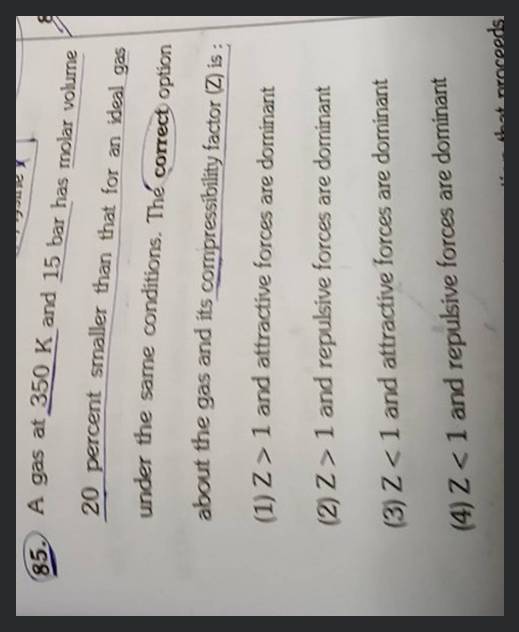 85. A gas at 350 K and 15 bar has molar volume
20 percent smaller than that for an ideal gas
under the same conditions. The correct option
about the gas and its compressibility factor (Z) is :
(1) Z > 1 and attractive forces are dominant
(2) Z > 1 and repulsive forces are dominant
(3) Z < 1 and attractive forces are dominant
(4) Z < 1 and repulsive forces are dominant
that proceeds